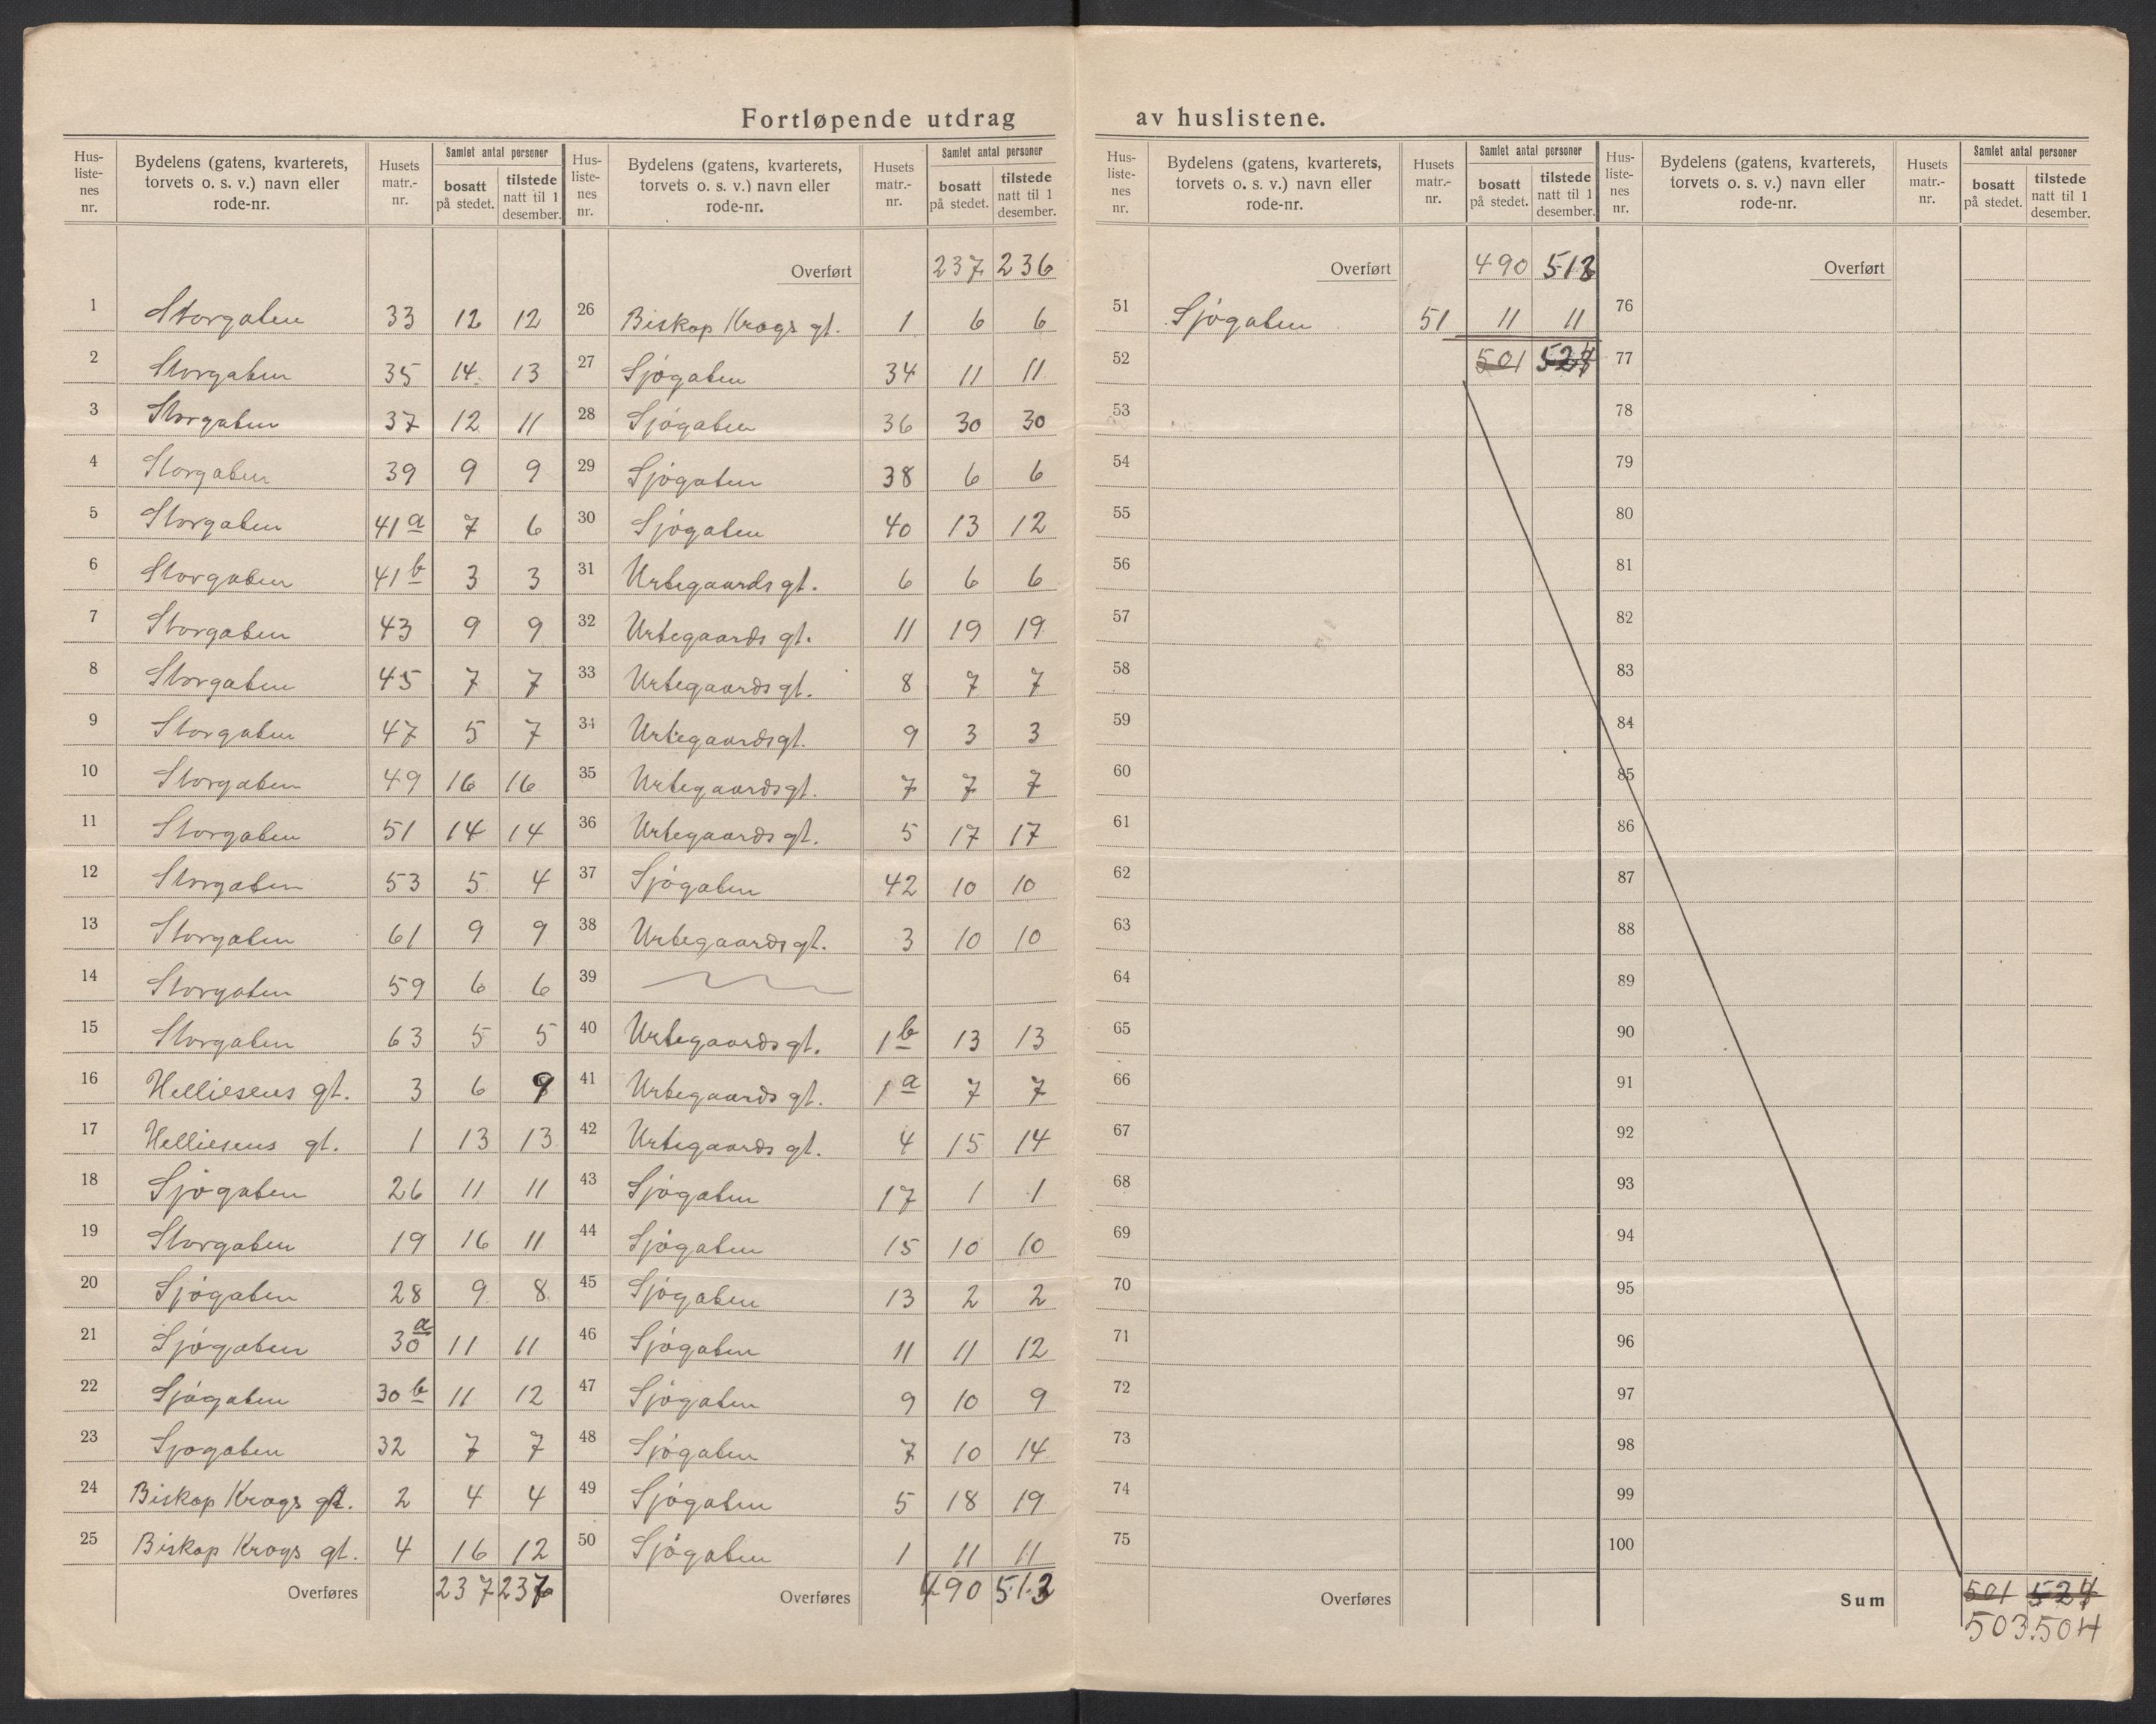 Fortløpende utdrag av huslistene.
Hus-listenes nr. | Bydelens (gatens, kvarterets, torvets o. s. v.) navn eller rode-nr. | Husets matr.-nr. | Samlet antal personer bosatt på stedet. | tilstede natt til 1 desember.
1 Storgaten 33 12 12
2 Storgaten 35 14 13
3 Storgaten 37 12 11
4 Storgaten 39 9 9
5 Storgaten 41a 7 6
6 Storgaten 41b 3 3
7 Storgaten 43 9 9
8 Storgaten 45 7 7
9 Storgaten 47 5 7
10 Storgaten 49 16 16
11 Storgaten 51 14 14
12 Storgaten 53 5 4
13 Storgaten 61 9 9
14 Storgaten 59 6 6
15 Storgaten 63 5 5
16 Helliesens gt. 3 6 9
17 Helliesens gt. 1 13 13
18 Sjøgaten 26 11 11
19 Storgaten 19 16 11
20 Sjøgaten 28 9 8
21 Sjøgaten 30a 11 11
22 Sjøgaten 30b 11 12
23 Sjøgaten 32 7 7
24 Biskop Krogs gt. 2 4 4
25 Biskop Krogs gt. 4 16 12
Overføres 237 236
Hus-listenes nr. | Bydelens (gatens, kvarterets, torvets o. s. v.) navn eller rode-nr. | Husets matr.-nr. | Samlet antal personer bosatt på stedet. | tilstede natt til 1 desember.
Overført 237 236
26 Biskop Krogs gt. 1 6 6
27 Sjøgaten 34 11 11
28 Sjøgaten 36 30 30
29 Sjøgaten 38 6 6
30 Sjøgaten 40 13 12
31 Urtegaards gt. 6 6 6
32 Urtegaards gt. 11 19 19
33 Urtegaards gt. 8 7 7
34 Urtegaards gt. 9 3 3
35 Urtegaards gt. 7 7 7
36 Urtegaards gt. 5 17 17
37 Sjøgaten 42 10 10
38 Urtegaards gt. 3 10 10
39
40 Urtegaards gt. 1b 13 13
41 Urtegaards gt. 1a 7 7
42 Urtegaards gt. 4 15 14
43 Sjøgaten 17 1 1
44 Sjøgaten 15 10 10
45 Sjøgaten 13 2 2
46 Sjøgaten 11 11 12
47 Sjøgaten 9 10 9
48 Sjøgaten 7 10 14
49 Sjøgaten 5 18 19
50 Sjøgaten 1 11 11
Overføres 490 513
Hus-listenes nr. | Bydelens (gatens, kvarterets, torvets o. s. v.) navn eller rode-nr. | Husets matr.-nr. | Samlet antal personer bosatt på stedet. | tilstede natt til 1 desember.
Overført 490 513
51 Sjøgaten 51 11 11
52 501 524
53
54
55
56
57
58
59
60
61
62
63
64
65
66
67
68
69
70
71
72
73
74
75
Overføres
Hus-listenes nr. | Bydelens (gatens, kvarterets, torvets o. s. v.) navn eller rode-nr. | Husets matr.-nr. | Samlet antal personer bosatt på stedet. | tilstede natt til 1 desember.
Overført
76
77
78
79
80
81
82
83
84
85
86
87
88
89
90
91
92
93
94
95
96
97
98
99
100
Sum 501 524
503. 504